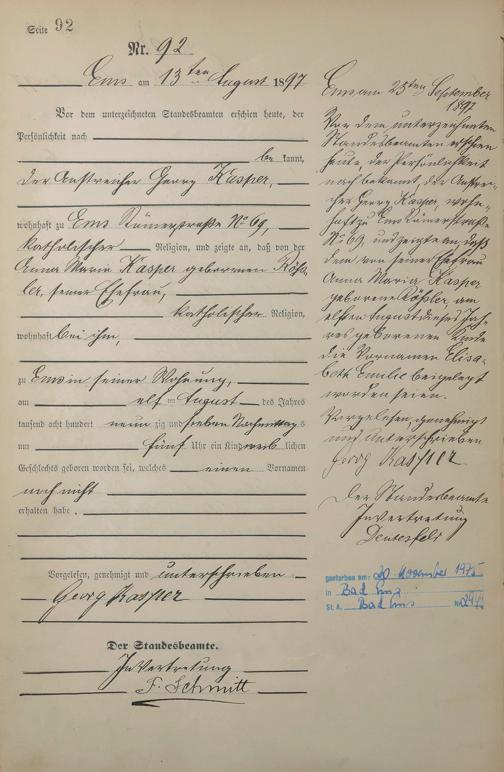 Seite 92
Nr. 92
Ems am 13ten August 1897
Vor dem unterzeichneten Standesbeamten erschien heute, der
Persönlichkeit nach
bekannt,
der Anstreicher Georg Kasper,
wohnhaft zu Ems Römerstraße No 69,
katholischer Religion, und zeigte an, daß von der
Anna Maria Kasper geborenen Röß-
ler, seiner Ehefrau,
katholischer Religion,
wohnhaft bei ihm,
zu Ems in seiner Wohnung,
am elf ten August des Jahres
tausend acht hundert neunzig und sieben Nachmittags
um fünf Uhr ein Kind weiblichen
Geschlechts geboren worden sei, welches einen Vornamen
noch nicht
erhalten habe.
Vorgelesen, genehmigt und unterschrieben
Georg Kasper
Der Standesbeamte.
In Vertretung
F. Schmitt
Ems am 25ten September
1897
Vor dem unterzeichneten
Standesbeamten erschien
heute, der Persönlichkeit
nach bekannt, der Anstrei-
cher Georg Kasper, wohn-
haft zu Ems Römerstraße
No 69, und zeigte an, daß
dem von seiner Ehefrau
Anna Maria Kasper
geborene Rößler, am
elften August dieses Jah-
res geborenen Kinde
die Vornamen Elisa-
beth Emilie beigelegt
worden seien.
Vorgelesen, genehmigt
und unterschrieben
Georg Kasper
Der Standesbeamte
In Vertretung
gestorben am: 20. November 1975
in Bad Ems
St. A. Bad Ems Nr.